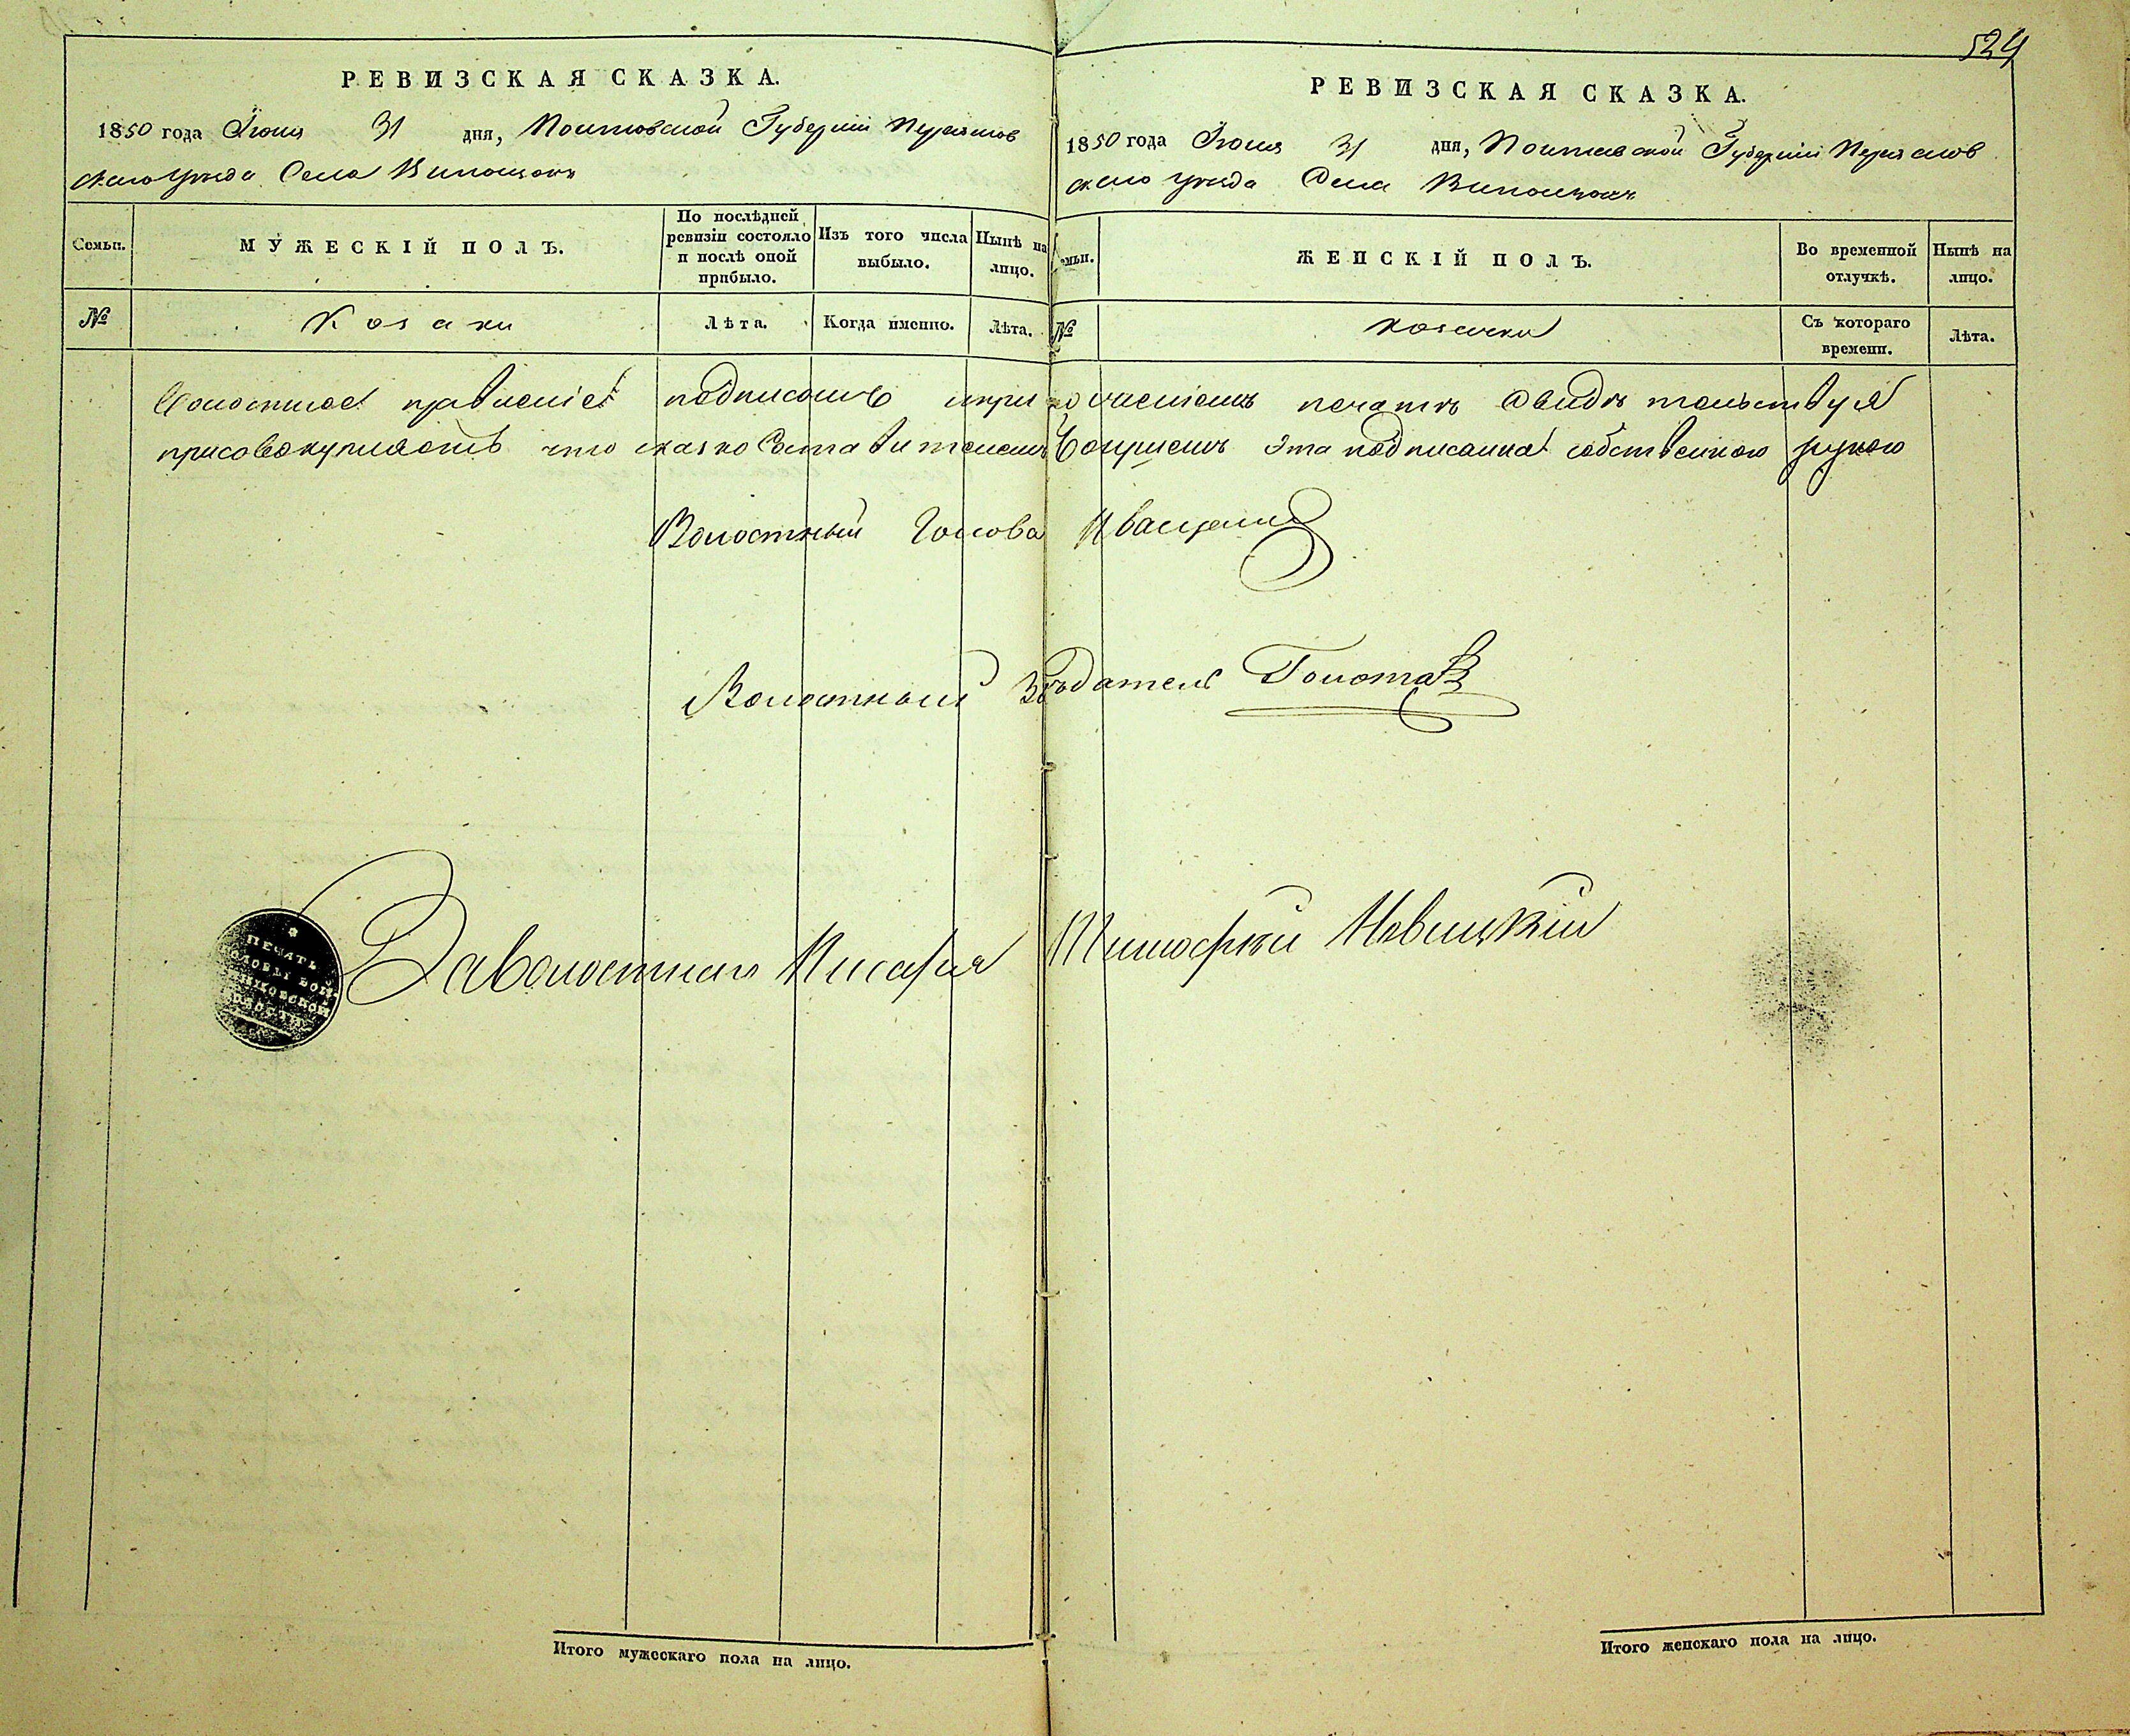 524
РЕВИЗСКАЯ СКАЗКА.
1850 года Іюня 31 дня, Полтавской Губерніи Переяслов
скаго уѣзда Села
Семьи.
МУЖЕСКІЙ ПОЛЪ.
По послѣдней ревизіи состояло и послѣ оной прибыло.
Изъ того числа выбыло.
Нынѣ на лицо.
№
Козаки
Лѣта.
Когда именно.
Лѣта.
РЕВИЗСКАЯ СКАЗКА.
1850 года Іюня 31 дня, Полтавской Губерніи Переяслов
скаго уѣзда Села
Семьи.
ЖЕНСКІЙ ПОЛЪ.
Во временной отлучкѣ.
Нынѣ на лицо.
№
козачки
Съ котораго времени.
Лѣта.
Волостное правленіе подписомъ и приложеніемъ печати свидѣтельствуя
присовокупляетъ что сказко эта подписанна собственною рукою
Волостный Голова Иващенко
Волостный Засѣдатель Голота
За волостнаго Писаря Тимофѣй Новицкій
ПЕЧАТЬ
ГОЛОВЫ
Итого мужескаго пола на лицо.
Итого женскаго пола на лицо.